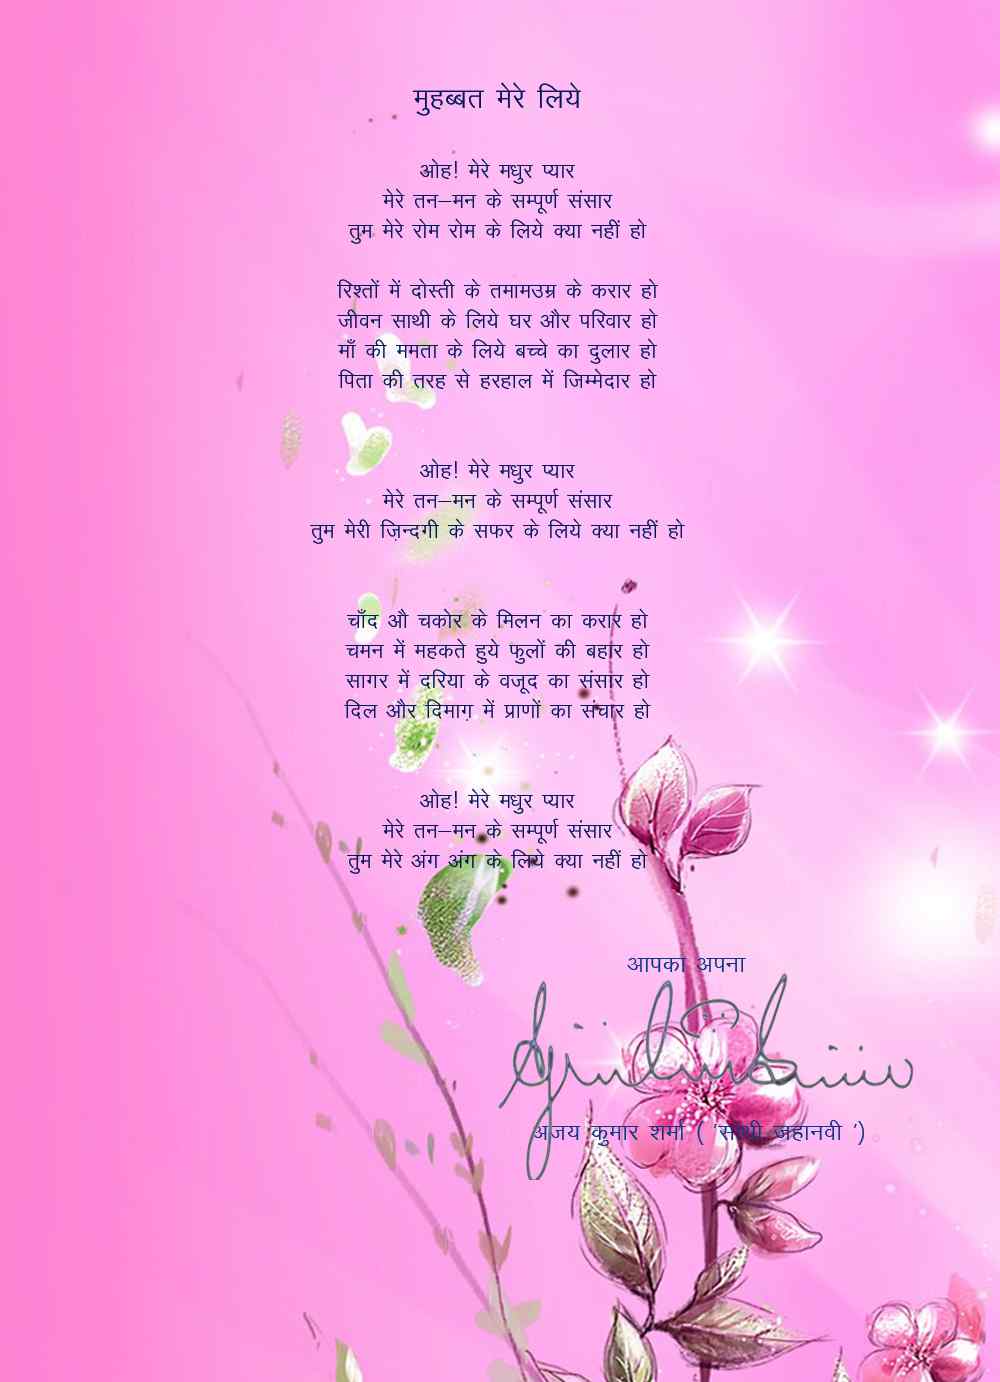 मुहब्बत मेरे लिये
ओह! मेरे मधुर प्यार
मेरे तन–मन के सम्पूर्ण संसार
तुम मेरे रोम रोम के लिये क्या नहीं हो
रिश्तों में दोस्ती के तमामउम्र के करार हो
जीवन साथी के लिये घर और परिवार हो
माँ की ममता के लिये बच्चे का दुलार हो
पिता की तरह से हरहाल में जिम्मेदार हो
ओह! मेरे मधुर प्यार
मेरे तन–मन के सम्पूर्ण संसार
तुम मेरी ज़िन्दगी के सफर के लिये क्या नहीं हो
चाँद औ चकोर के मिलन का करार हो
चमन में महकते हुये फुलों की बहार हो
सागर में दरिया के वजूद का संसार हो
दिल और दिमाग़ में प्राणों का संचार हो
ओह! मेरे मधुर प्यार
मेरे तन–मन के सम्पूर्ण संसार
तुम मेरे अंग अंग के लिये क्या नहीं हो
आपका अपना
अजय कुमार शर्मा ( 'साथी जहानवी ')